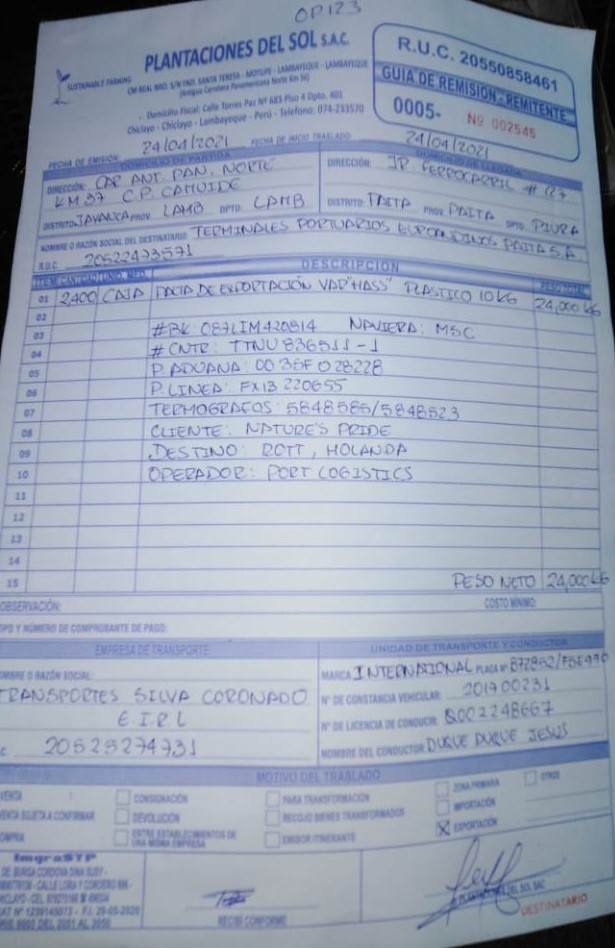 OP123
PLANTACIONES DEL SOL S.A.C.
SUSTAINABLE FARMING
CM REAL NRO. S/N FND. SANTA TERESA - MOTUPE - LAMBAYEQUE - LAMBAYEQUE
(Antigua Carretera Panamericana Norte Km 56)
- Domicilio Fiscal: Calle Torres Paz Nº 683 Piso 4 Dpto. 401
Chiclayo - Chiclayo - Lambayeque - Perú - Telefono: 074-233570
R.U.C. 20550858461
GUIA DE REMISIÓN - REMITENTE
0005- Nº 002545
FECHA DE EMISIÓN: 24/04/2021 FECHA DE INICIO TRASLADO: 24/04/2021
DOMICILIO DE PARTIDA
DIRECCIÓN: CAR ANT. PAN. NORTE
KM 37 C.P. CAHUIDE
DISTRITO: JAYANCA PROV. LAMB DPTO. LAMB
DOMICILIO DE LLEGADA
DIRECCIÓN: JR. FERROCARRIL # 127
DISTRITO: PAITA PROV. PAITA DPTO. PIURA
NOMBRE O RAZÓN SOCIAL DEL DESTINATARIO: TERMINALES PORTUARIOS EUROANDINOS PAITA S.A.
R.U.C. 20522473571
ITEM CANTIDAD UNID. MED. DESCRIPCIÓN PESO TOTAL
01 2,400 CAJA PALTA DE EXPORTACIÓN VAR "HASS" PLASTICO 10 KG 24,000 KG
02
03 #BK: 087LIM420814 NAVIERA: MSC
04 # CNTR: TTNU 836511-1
05 P. ADUANA: 0036F028228
06 P. LINEA: FX13 220655
07 TERMOGRAFOS: 5848585/5848523
08 CLIENTE: NATURE'S PRIDE
09 DESTINO: ROTT, HOLANDA
10 OPERADOR: PORT LOGISTICS
11
12
13
14
15 PESO NETO 24,000 KG
OBSERVACIÓN: COSTO MÍNIMO:
TIPO Y NÚMERO DE COMPROBANTE DE PAGO:
EMPRESA DE TRANSPORTE
NOMBRE O RAZÓN SOCIAL:
TRANSPORTES SILVA CORONADO
E.I.R.L
20525274731
UNIDAD DE TRANSPORTE Y CONDUCTOR
MARCA INTERNATIONAL PLACA Nº
Nº DE CONSTANCIA VEHICULAR: 201700231
Nº DE LICENCIA DE CONDUCIR: Q002248667
NOMBRE DEL CONDUCTOR DUQUE DUQUE JESUS
MOTIVO DEL TRASLADO
VENTA
VENTA SUJETA A CONFIRMAR
COMPRA
CONSIGNACIÓN
DEVOLUCIÓN
ENTRE ESTABLECIMIENTOS DE
UNA MISMA EMPRESA
PARA TRANSFORMACIÓN
RECOJO BIENES TRANSFORMADOS
EMISOR ITINERANTE
ZONA PRIMARIA
IMPORTACIÓN
EXPORTACIÓN
OTROS
ImgraSYP
RECIBÍ CONFORME
PLANTACIONES DEL SOL SAC
DESTINATARIO